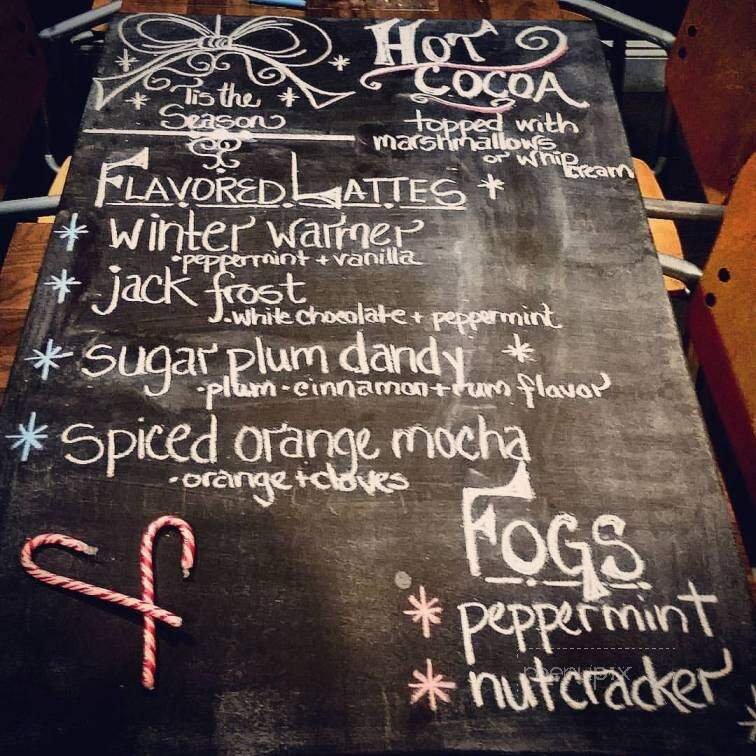 'Tis the
Season
Hot
Cocoa
topped with
marshmallows
or whip
cream
Flavored Lattes
winter warmer
•peppermint + vanilla
jack frost
•white chocolate + peppermint
sugar plum dandy
•plum-cinnamon + rum flavor
spiced orange mocha
•orange + cloves
Fogs
peppermint
nutcracker
menupix